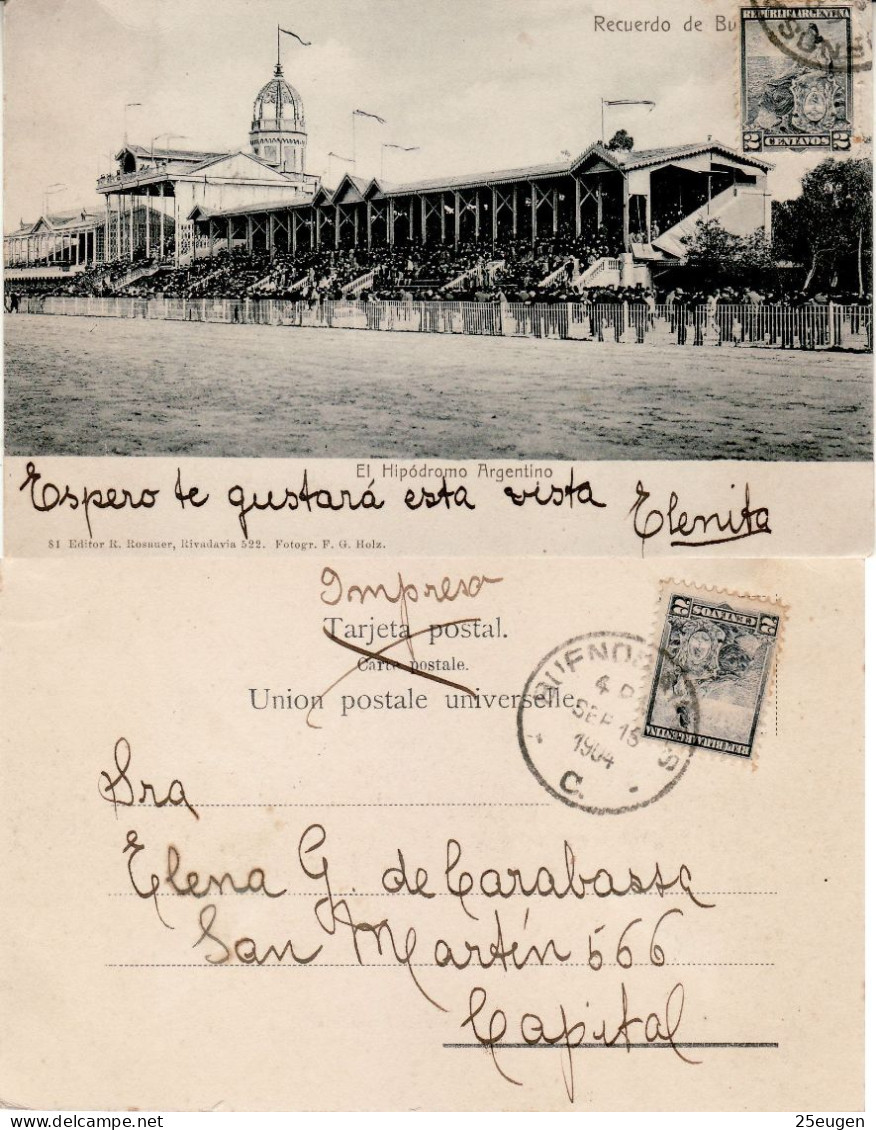 Recuerdo de Bu
REPÚBLICA ARGENTINA
2 CENTAVOS 2
El Hipódromo Argentino
Espero te gustará esta vista
Elenita
81 Editor R. Rosauer, Rivadavia 522. Fotogr. F. G. Holz.
Impreso
Tarjeta postal.
Carte postale.
Union postale universelle.
BUENOS
4 P
SEP 15
1904
C.
2 CENTAVOS 2
REPÚBLICA ARGENTINA
Sra
Elena G. de Carabassa
San Martín 566
Capital
25eugen